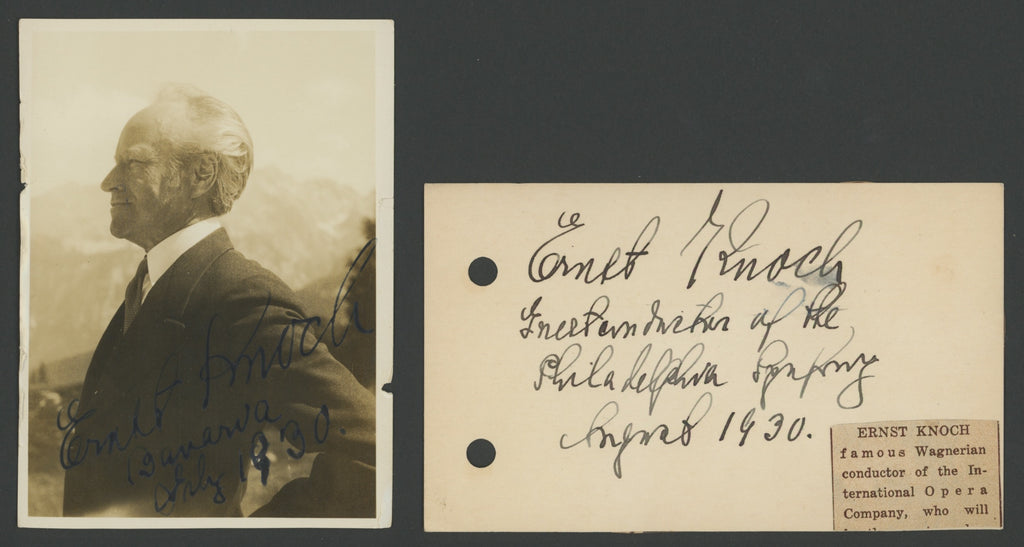 Ernst Knoch
Bavaria
July 1930.
Ernst Knoch
Guestconductor of the
Philadelphia Symphony
August 1930.
ERNST KNOCH
famous Wagnerian
conductor of the In-
ternational Opera
Company, who will